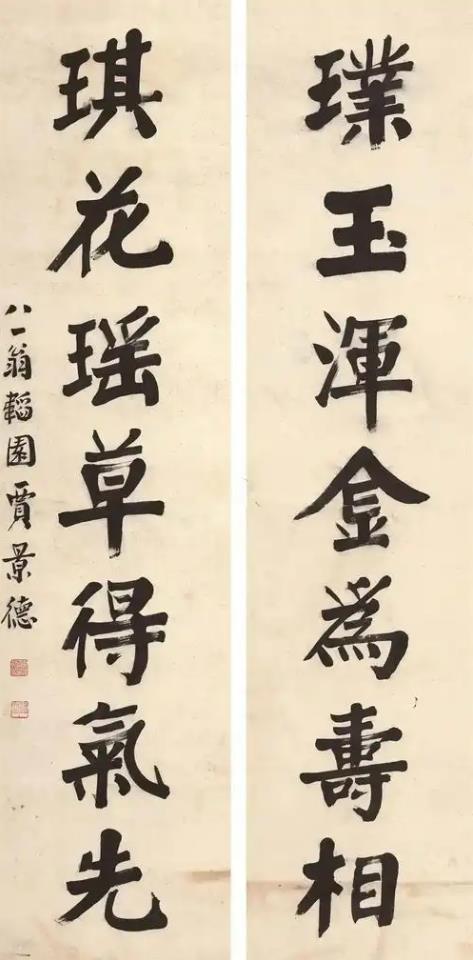 璞玉渾金爲壽相
琪花瑶草得氣先
八一翁韜園賈景德